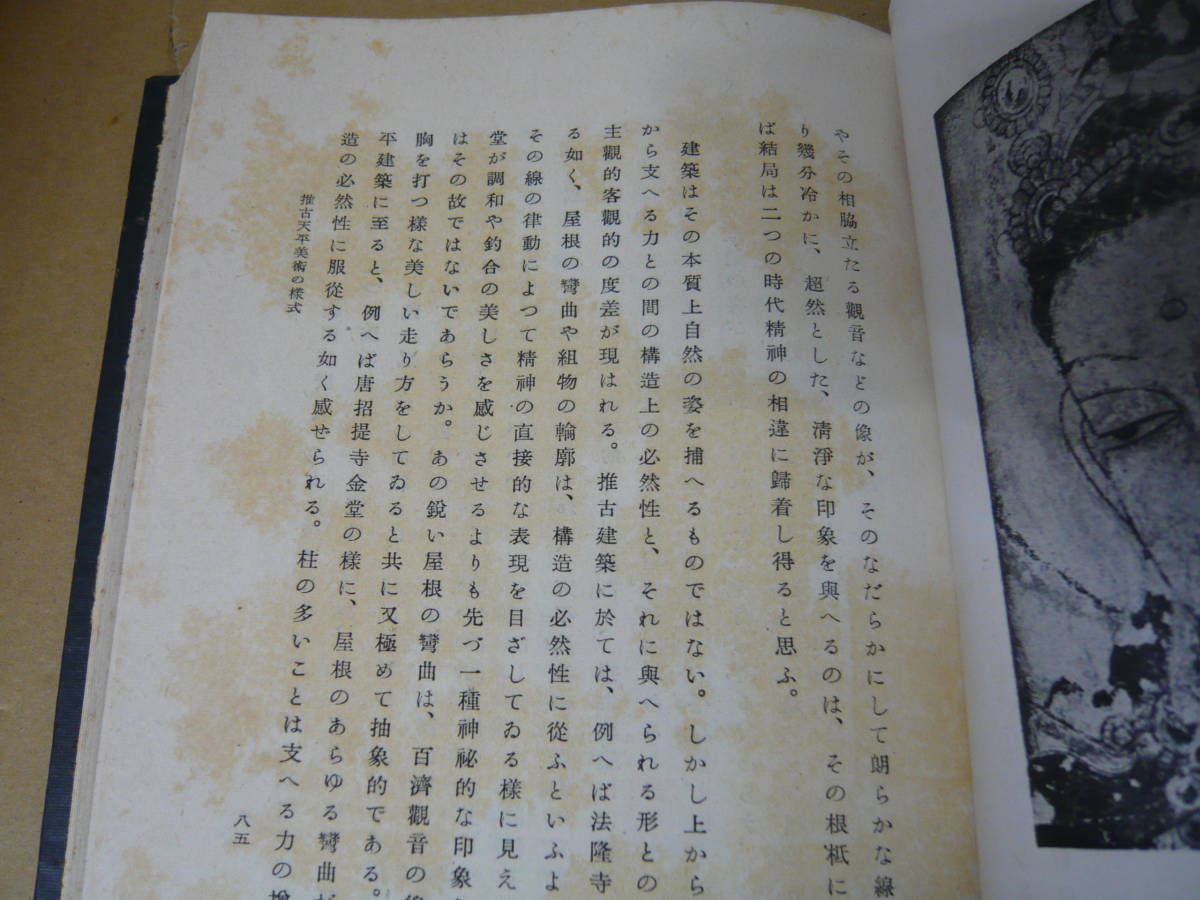 やその相脇立たる觀音などの像が、そのなだらかにして朗らかな線
り幾分冷かに、超然とした、淸淨な印象を與へるのは、その根柢に
ば結局は二つの時代精神の相違に歸着し得ると思ふ。
建築はその本質上自然の姿を捕へるものではない。しかし上から
から支へる力との間の構造上の必然性と、それに與へられる形との
主觀的客觀的の度差が現はれる。推古建築に於ては、例へば法隆寺
る如く、屋根の彎曲や組物の輪廓は、構造の必然性に從ふといふよ
その線の律動によつて精神の直接的な表現を目ざしてゐる樣に見え
堂が調和や釣合の美しさを感じさせるよりも先づ一種神祕的な印象
はその故ではないであらうか。あの銳い屋根の彎曲は、百濟觀音の線
胸を打つ樣な美しい走り方をしてゐると共に又極めて抽象的である。
平建築に至ると、例へば唐招提寺金堂の樣に、屋根のあらゆる彎曲が
造の必然性に服從する如く感せられる。柱の多いことは支へる力の增
推古天平美術の樣式
八五